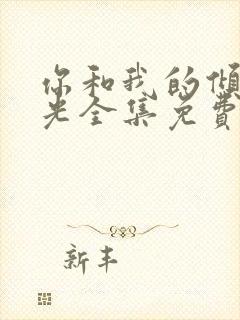 你和我的倾
光全集免费
新丰